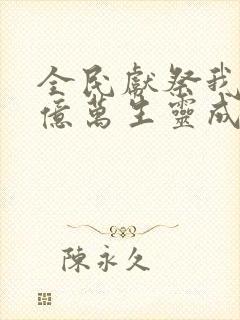 全民獻祭我
億萬生靈成
陳永久